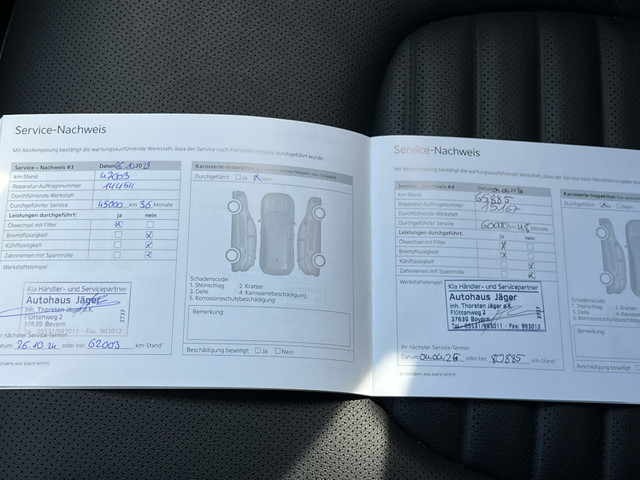 Service-Nachweis
Mit Abstempelung bestätigt die wartungsausführende Werkstatt, dass der Service nach Herstellervorgabe durchgeführt wurde.
Service – Nachweis #3 Datum
km-Stand 47003
Reparatur-Auftragsnummer 14454
Durchführende Werkstatt
Durchgeführter Service 45000 km 36 Monate
Leistungen durchgeführt: ja nein
Ölwechsel mit Filter
Bremsflüssigkeit
Kühlflüssigkeit
Zahnriemen mit Spannrolle
Werkstattstempel
Kia Händler - und Servicepartner
Autohaus Jäger
Inh. Thorsten Jäger e.K.
Flüttenweg 2
37639 Bevern
Ihr nächster Service-Termin
Datum: 26.10.24 oder bei: 62003 km-Stand
Karosserie-Inspektion
Durchgeführt: Ja Nein
Schadenscode:
1. Steinschlag 2. Kratzer
3. Delle 4. Karosseriebeschädigung
5. Korrosionsschutzbeschädigung
Bemerkung:
Beschädigung beseitigt: Ja Nein
Service-Nachweis
Mit Abstempelung bestätigt die wartungsausführende Werkstatt, dass der Service nach Herstellervorgabe
Service – Nachweis #4 Datum
km-Stand 65885
Reparatur-Auftragsnummer
Durchführende Werkstatt
Durchgeführter Service 60000 km 48 Monate
Leistungen durchgeführt: ja nein
Ölwechsel mit Filter
Bremsflüssigkeit
Kühlflüssigkeit
Zahnriemen mit Spannrolle
Werkstattstempel
Kia Händler - und Servicepartner
Autohaus Jäger
Inh. Thorsten Jäger e.K.
Flüttenweg 2
37639 Bevern
Tel. 05531/993011 - Fax: 993012
Ihr nächster Service-Termin
Datum: 04.04.26 oder bei: 80885 km-Stand
Karosserie-Inspektion
Durchgeführt:
Schadenscode:
1. Steinschlag
3. Delle
5. Korrosionsschutzbeschädigung
Bemerkung:
Beschädigung beseitigt: